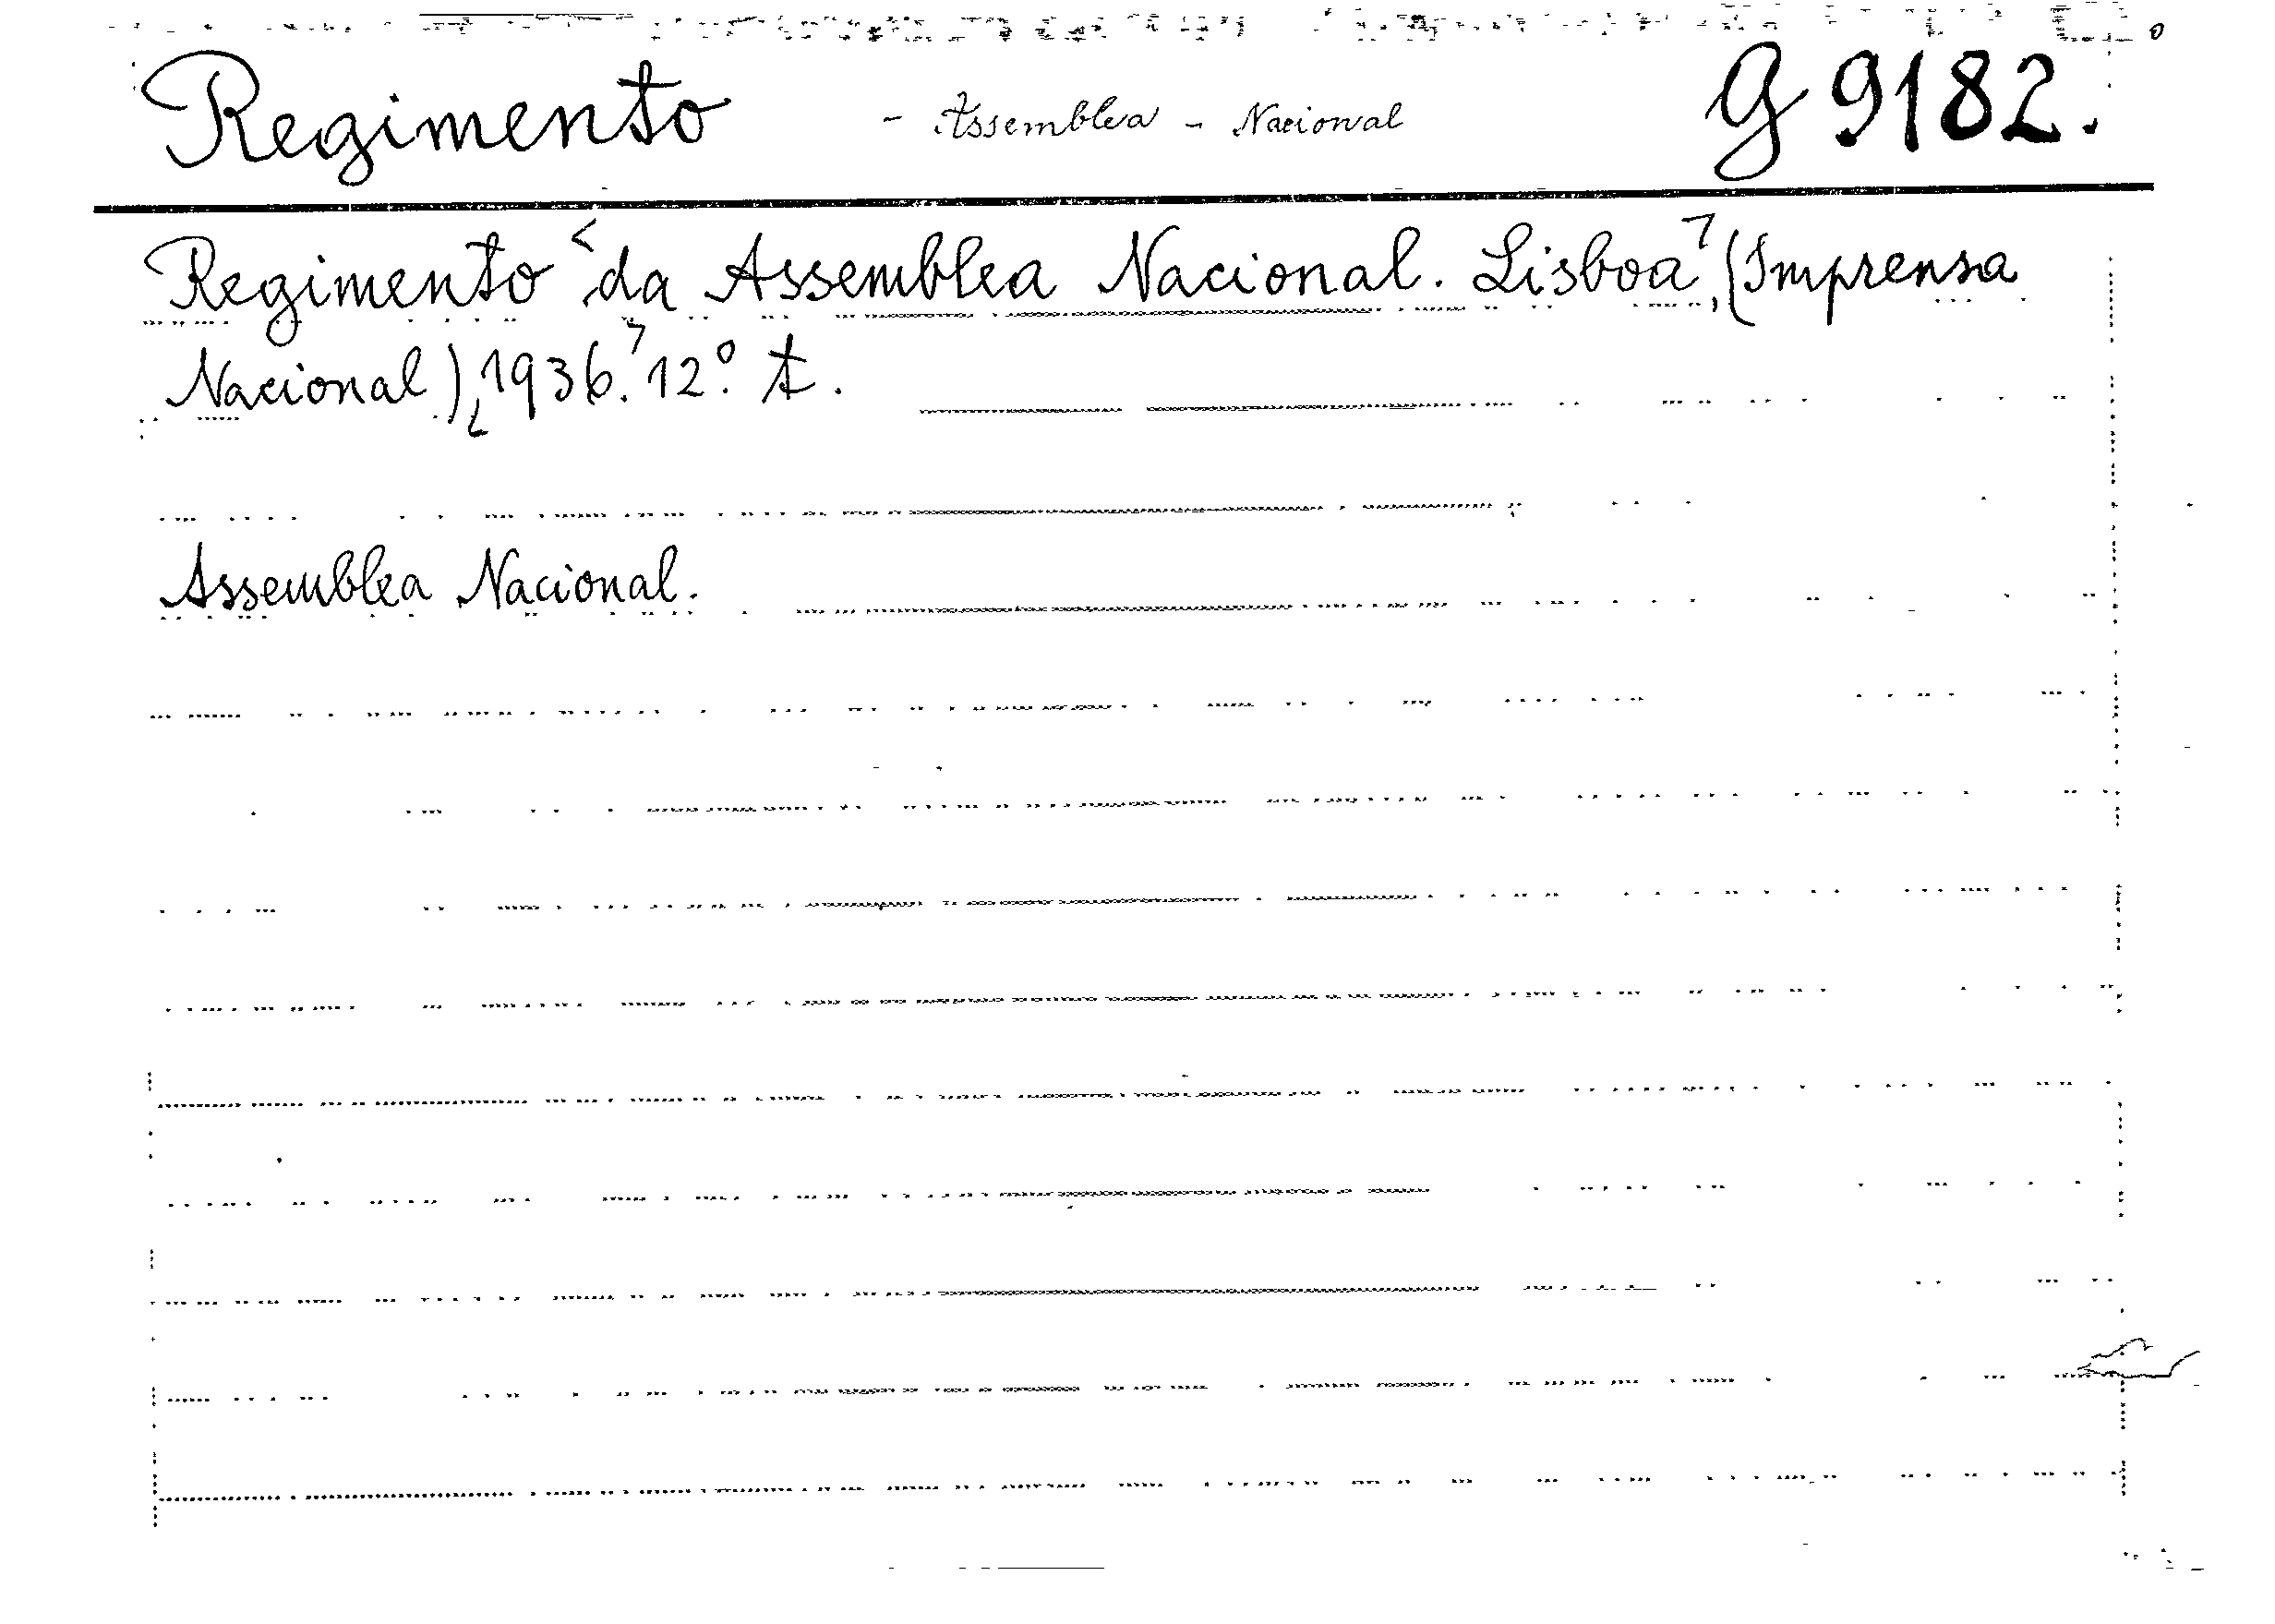 Regimento - Assemblea - Nacional G 9182.
Regimento da Assemblea Nacional. Lisboa, (Imprensa
Nacional), 1936. 12.º t.
Assemblea Nacional.